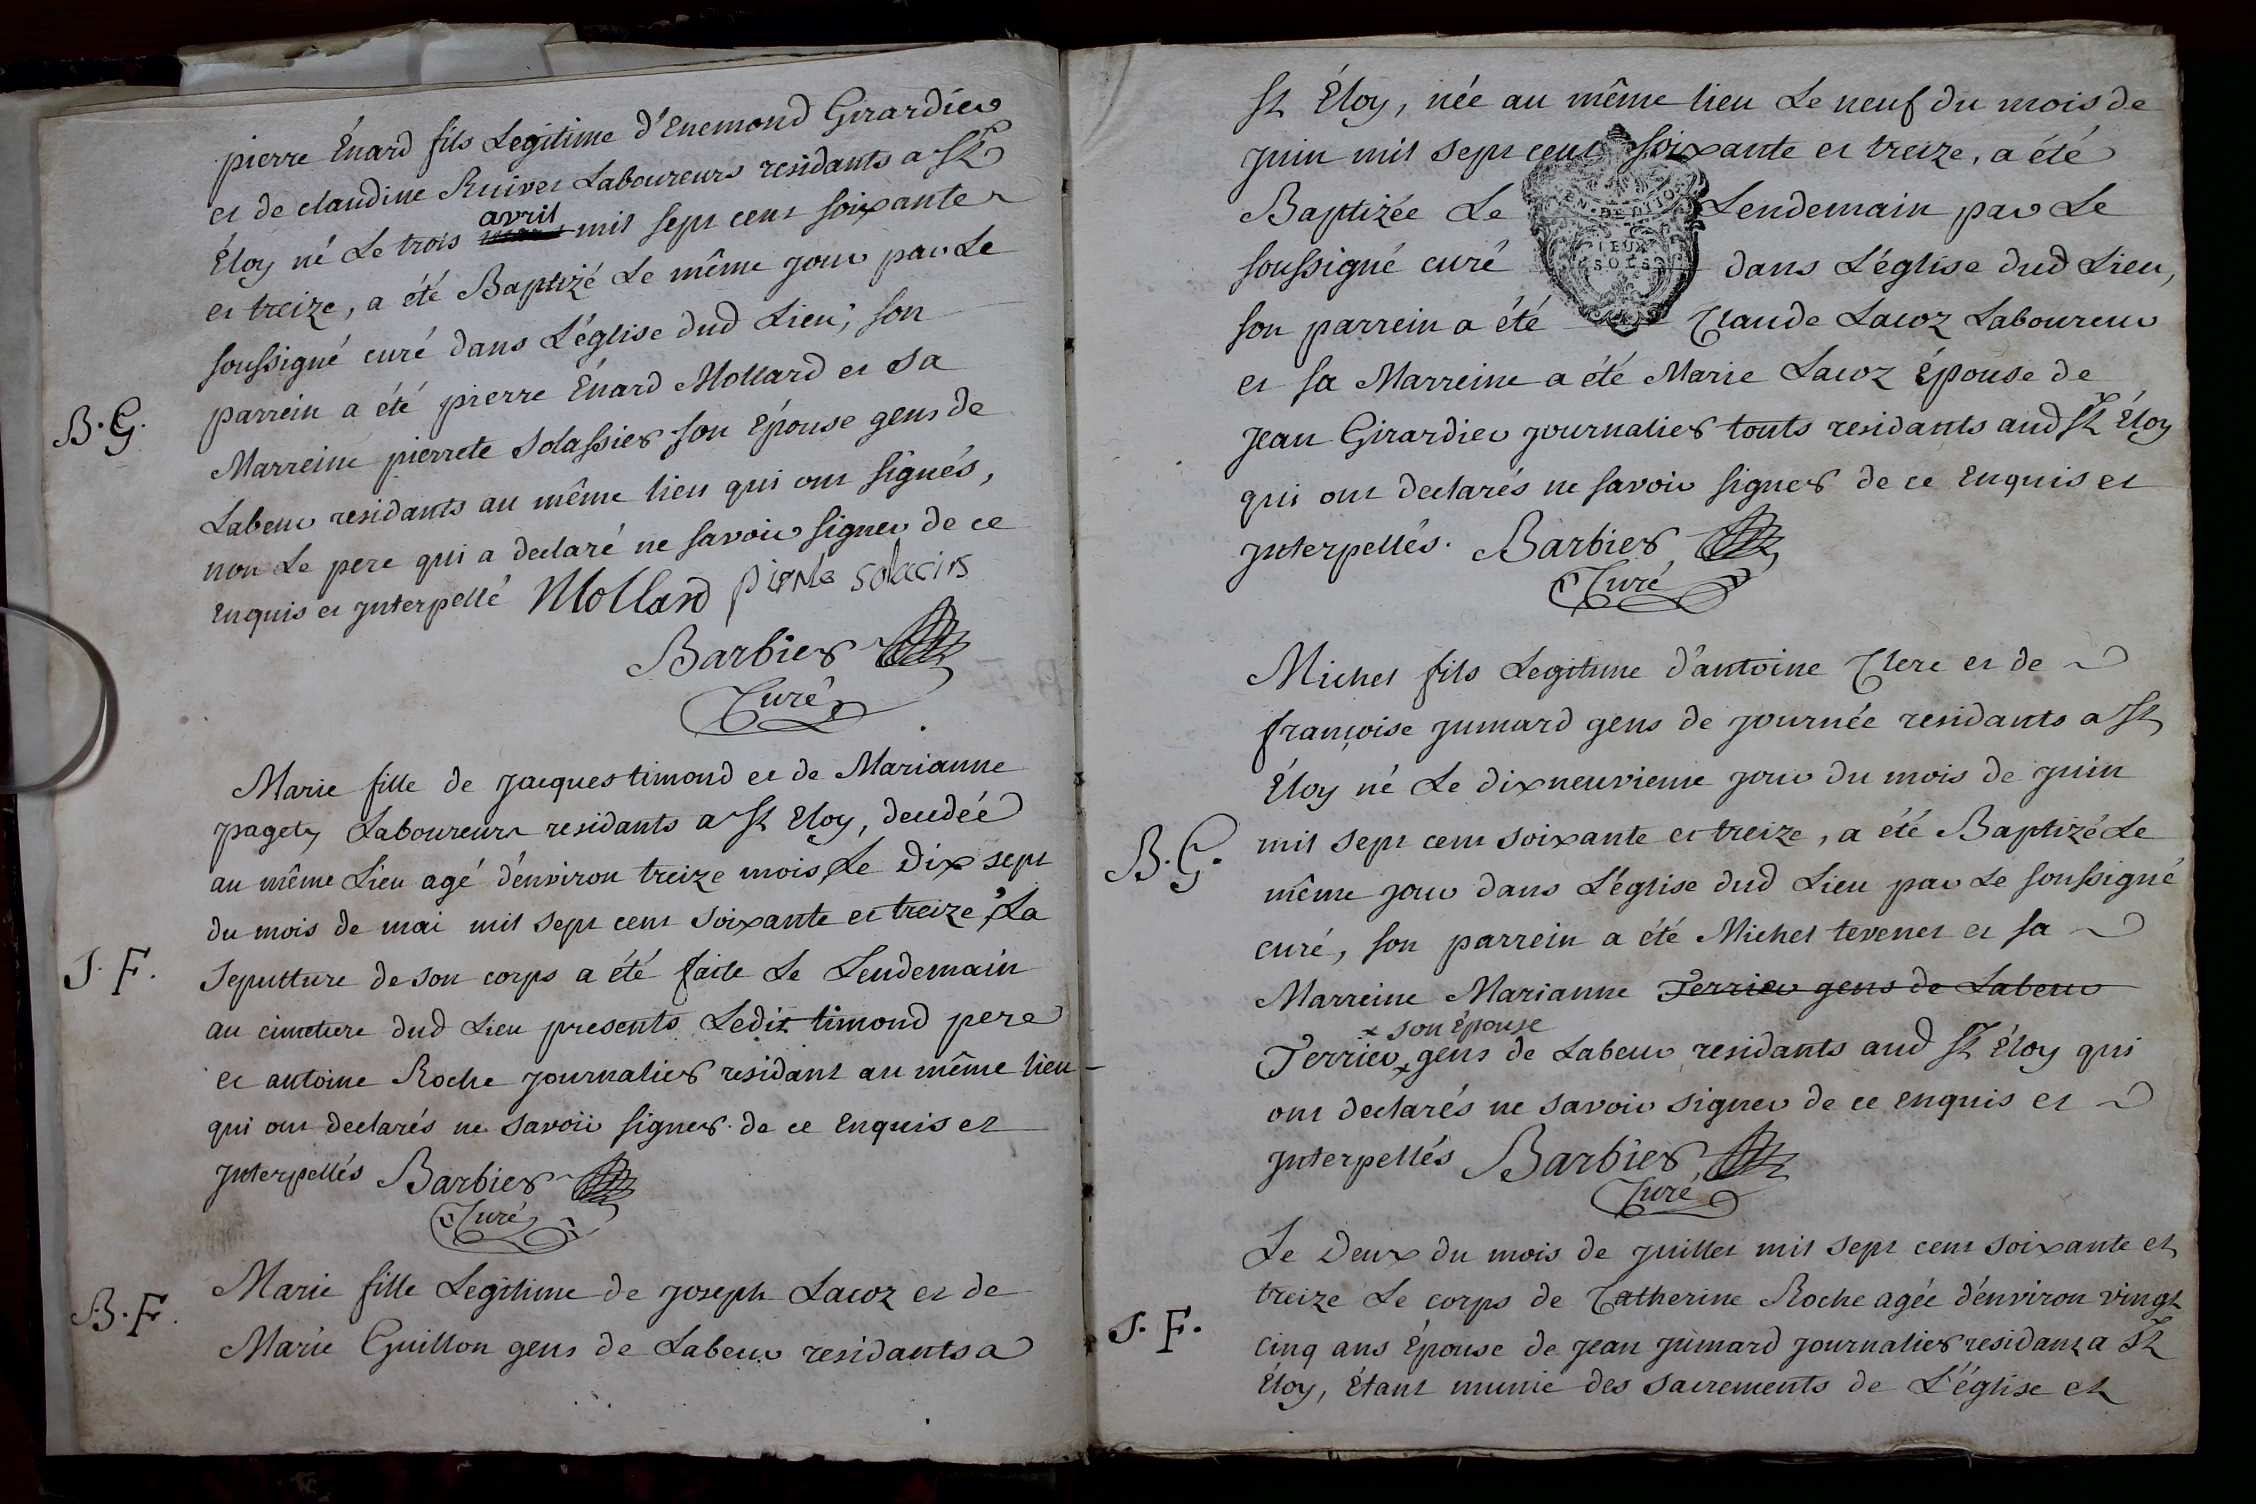 pierre Énard fils Legitime d'Enemond Girardier
et de claudine Ruivet Laboureurs residants a St
Éloy né Le trois avril mil sept cent soixante
et treize, a été Baptizé Le même jour par Le
soussigné curé dans L'église dud Lieu, son
parrein a été pierre Énard Mollard et sa
B. G.
Marreine pierrete Solassier son épouse gens de
Labeur residants au même lieu qui ont signés,
non Le pere qui a declaré ne savoir signer de ce
enquis et interpellé Mollard
Barbier
Curé
Marie fille de jacques timond et de Marianne
pagety Laboureurs residants a St Eloy, decedée
au même Lieu agé d'environ treize mois, Le Dix sept
du mois de mai mil sept cent soixante et treize, La
S. F.
Sepulture de son corps a été faite Le Lendemain
au cimetiere dud Lieu presents Ledit timond pere
et antoine Roche journalier residant au même lieu
qui ont declarés ne savoir signer de ce enquis et
interpellés Barbier
Curé
Marie fille Legitime de joseph Lacoz et de
B. F.
Marie Guillon gens de Labeur residants a
St Éloy, née au même lieu Le neuf du mois de
juin mil sept cent soixante et treize, a été
Baptizée Le Lendemain par Le
soussigné curé dans L'église dud Lieu,
son parrein a été Claude Lacoz Laboureur
et sa Marreine a été Marie Lacoz épouse de
jean Girardier journalier touts residants aud St Éloy
qui ont declarés ne savoir signer de ce enquis et
interpellés. Barbier
Curé
Michel fils Legitime d'antoine Clerc et de
françoise jumard gens de journée residants a St
Éloy né Le dixneuvieme jour du mois de juin
B. G.
mil sept cent soixante et treize, a été Baptizé Le
même jour dans L'église dud Lieu par Le soussigné
curé, son parrein a été Michel tevenet et sa
Marreine Marianne Terrier gens de Labeur
x son épouse
Terrier x gens de Labeur residants aud St Éloy qui
ont declarés ne savoir signer de ce enquis et
interpellés Barbier
Curé
Le Deux du mois de juillet mil sept cent soixante et
treize Le corps de Catherine Roche agée d'environ vingt
S. F.
cinq ans épouse de jean jumard journalier residant a St
Éloy, étant munie des sacrements de L'église et